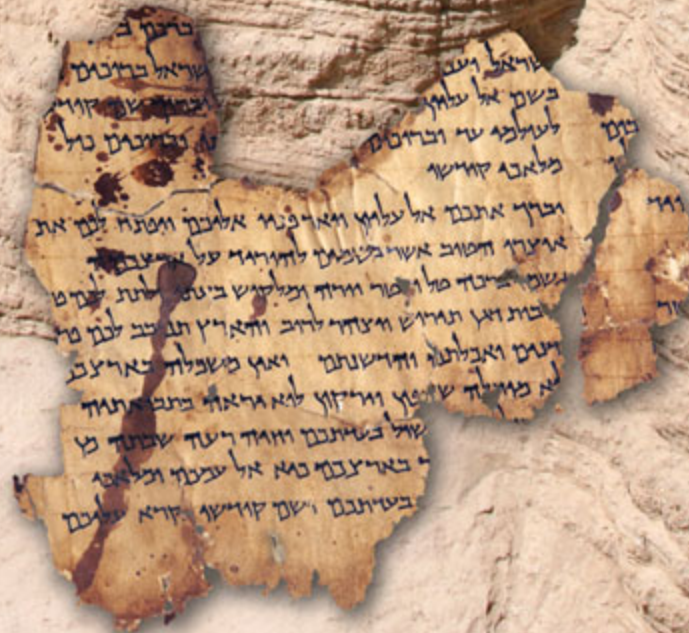 ברכם ב
שראל וענ שראל ברוכים
בשם אל עליון וברוך שם קודש
לעולמי עד וברוכים וברוכים כול
מלאכי קודשו
יברך אתכם אל עליון ויאר פניו אליכם ויפתח לכם את
אוצרו הטוב אשר בשמים להוריד על ארצכם
גשמי ברכה טל ומטר יורה ומלקוש בעתו ולתת לכם
בות דגן תירוש ויצהר לרוב והארץ תנובב לכם פר
דנים ואכלתם והדשנתם ואין משכלה בארצכם
לא מוחלה שדפון וירקון לוא יראה בתבואתיה
שול בעדתכם וחיה רעה שבתה מן
בארצכם כיא אל עמכם ומלאכי
בעדתכם ושם קודשו נקרא עליכם